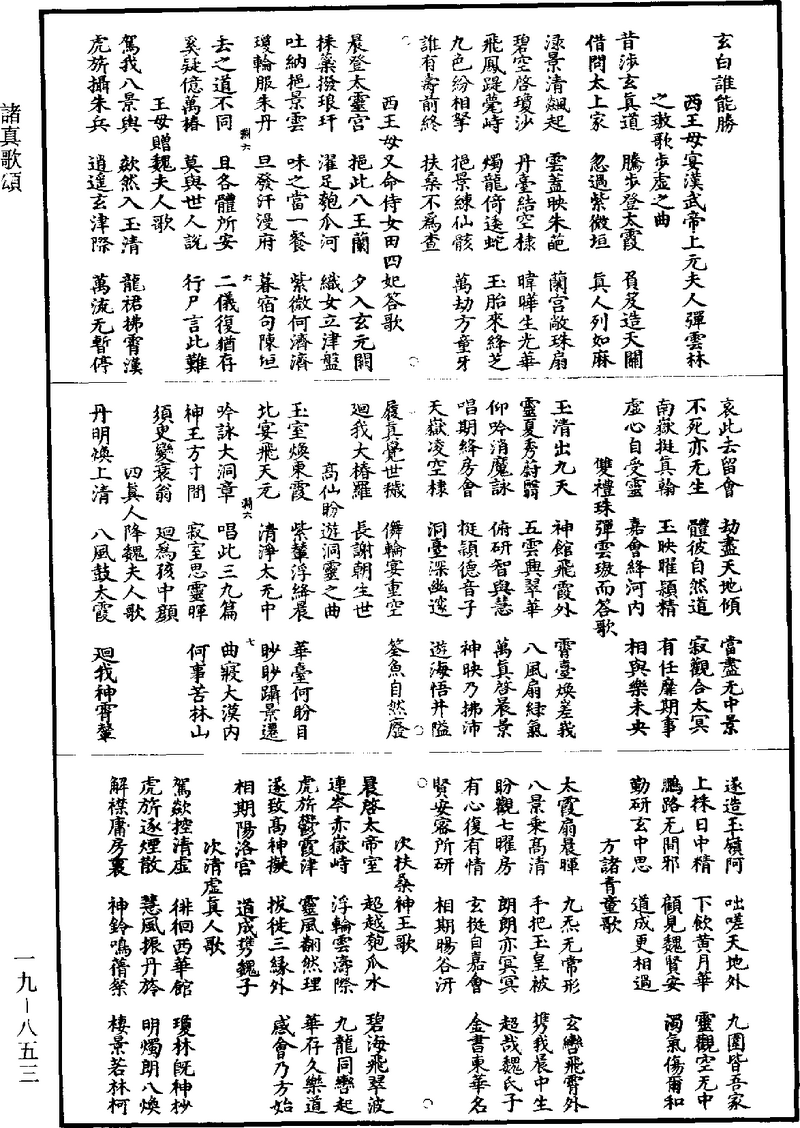 玄白誰能勝
西王母宴漢武帝上元夫人彈雲林
之璈歌步虛之曲
昔涉玄真道　騰步登太霞　負笈造天關
借問太上家　忽過紫微垣　真人列如麻
淥景清飆起　雲蓋映朱葩　蘭宮敞珠扇
碧空啓瓊沙　丹臺結空棣　暐曄生光華
飛鳳踶甍峙　燭龍倚逶蛇　玉胎來絳芝
九色紛相拏　挹景練仙骸　萬劫方童牙
誰有壽前終　扶桑不爲查
西王母又命侍女田四妃答歌
晨登太靈宮　挹此八玉蘭　夕入玄元闕
採藥掇琅玕　濯足匏瓜河　織女立津盤
吐納挹景雲　味之當一餐　紫微何濟濟
瓊輪服朱丹　旦發汗漫府　暮宿句陳垣
去之道不同　且各體所安　二儀復猶存
奚疑億萬椿　莫與世人說　行尸言此難
王母贈魏夫人歌
駕我八景輿　欻然入玉清　龍裙拂霄漢
虎旂攝朱兵　逍遥玄津際　萬流无暫停
哀此去留會　劫盡天地傾　當盡无中景
不死亦无生　體彼自然道　寂觀合太冥
南嶽挺真翰　玉映曜頴精　有任靡期事
虛心自受靈　嘉會絳河內　相與樂未央
雙禮珠彈雲璈而答歌
玉清出九天　神館飛霞外　霄臺煥嵳我
靈夏秀蔚翳　五雲興翠華　八風扇綠氣
仰吟消魔詠　俯研智與慧　萬真啓晨景
唱期絳房會　挺頴德音子　神映乃拂沛
天嶽凌空棣　洞臺深幽邃　遊海悟井隘
履真覺世穢　儛輪宴重空　筌魚自然廢
廻我大椿羅　長謝朝生世
高仙盼遊洞靈之曲
玉室煥東霞　紫輦浮絳晨　華臺何盼目
北宴飛天元　清淨太无中　眇眇躡景遷
吟詠大洞章　唱此三九篇　曲寢大漠內
神王方寸間　寂室思靈暉　何事苦林山
須臾變衰翁　廻爲孩中顏
四真人降魏夫人歌
丹明煥上清　八風鼓太霞　廻我神霄輦
遂造玉嶺阿　咄嗟天地外　九圍皆吾家
上採日中精　下飲黃月華　靈觀空无中
鵬路无間邪　顧見魏賢安　濁氣傷爾和
勤研玄中思　道成更相過
方諸青童歌
太霞扇晨暉　九炁无常形　玄轡飛霄外
八景乘高清　手把玉皇袂　携我晨中生
盼觀七曜房　朗朗亦冥冥　超哉魏氏子
有心復有情　玄挺自嘉會　金書東華名
賢安密所研　相期暘谷汧
次扶桑神王歌
晨啓太帝室　超越匏瓜水　碧海飛翠波
連岑赤嶽峙　浮輪雲濤際　九龍同轡起
虎旂鬱霞津　靈風翻然理　華存久樂道
遂致高神擬　拔徙三緣外　感會乃方始
相期陽洛宮　道成携魏子
次清虛真人歌
駕欻控清虛　徘徊西華館　瓊林既神杪
虎旂逐煙散　慧風振丹旍　明燭朗八煥
解襟庸房裏　神鈴鳴蒨粲　棲景若林柯
諸真歌頌
一九—八五三